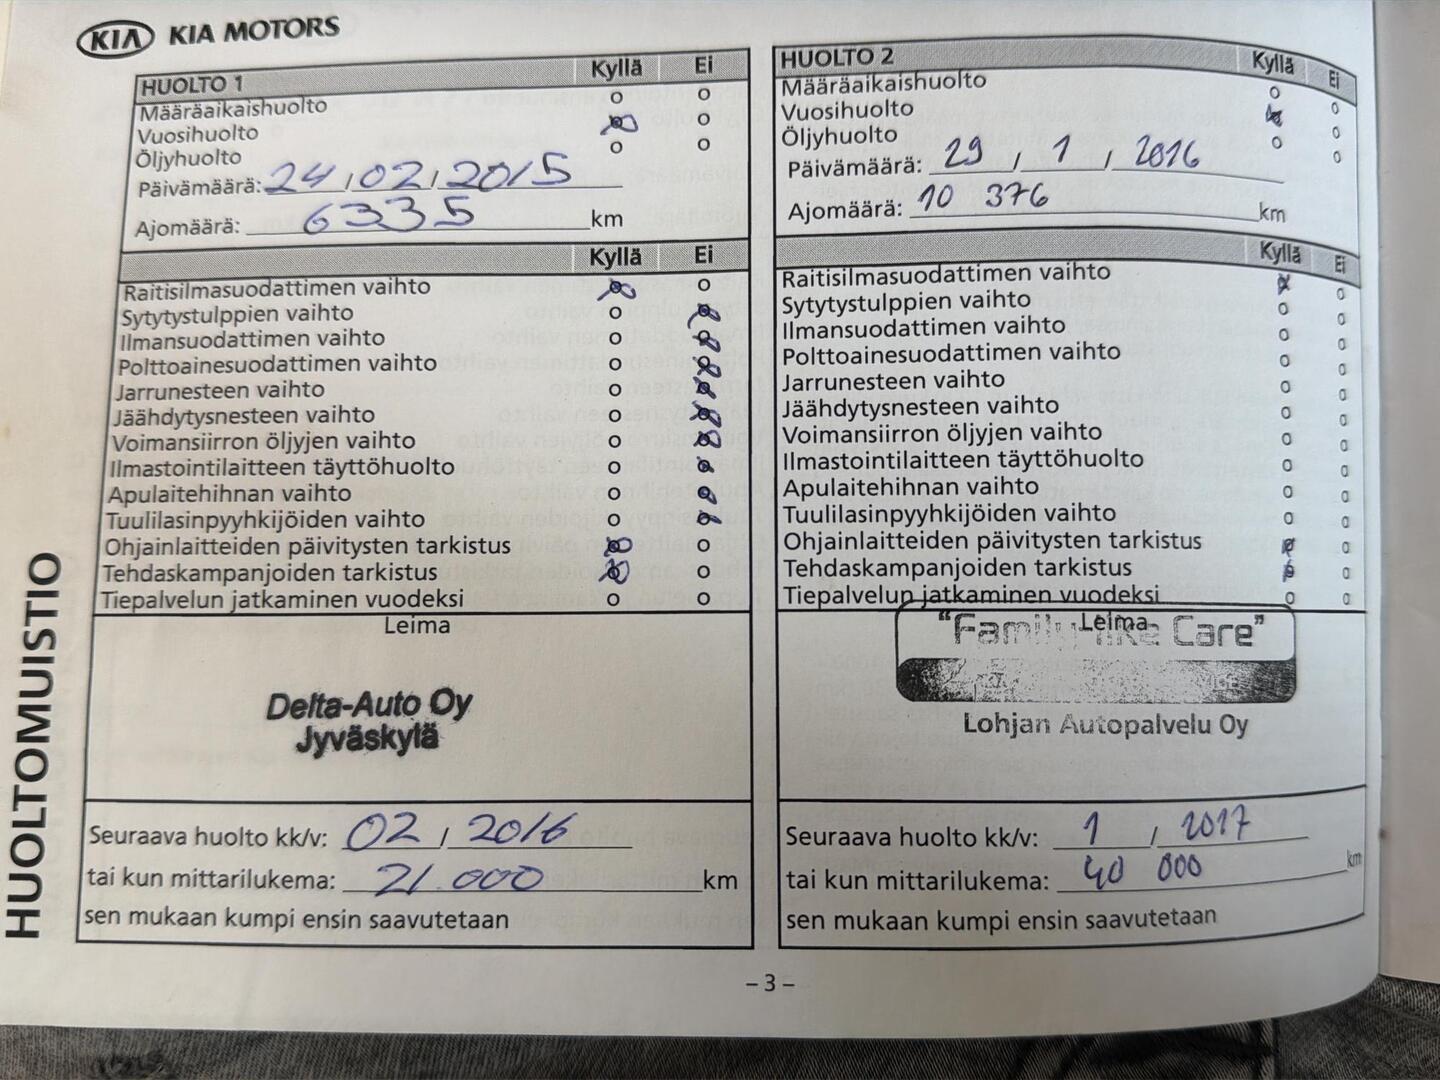 KIA KIA MOTORS
HUOLTOMUISTIO
HUOLTO 1 Kyllä Ei
Määräaikaishuolto
Vuosihuolto
Öljyhuolto
Päivämäärä: 24 / 02 / 2015
Ajomäärä: 6335 km
Kyllä Ei
Raitisilmasuodattimen vaihto
Sytytystulppien vaihto
Ilmansuodattimen vaihto
Polttoainesuodattimen vaihto
Jarrunesteen vaihto
Jäähdytysnesteen vaihto
Voimansiirron öljyjen vaihto
Ilmastointilaitteen täyttöhuolto
Apulaitehihnan vaihto
Tuulilasinpyyhkijöiden vaihto
Ohjainlaitteiden päivitysten tarkistus
Tehdaskampanjoiden tarkistus
Tiepalvelun jatkaminen vuodeksi
Leima
Delta-Auto Oy
Jyväskylä
Seuraava huolto kk/v: 02 / 2016
tai kun mittarilukema: 21.000 km
sen mukaan kumpi ensin saavutetaan
HUOLTO 2 Kyllä Ei
Määräaikaishuolto
Vuosihuolto
Öljyhuolto
Päivämäärä: 29 / 1 / 2016
Ajomäärä: 10 376 km
Kyllä Ei
Raitisilmasuodattimen vaihto
Sytytystulppien vaihto
Ilmansuodattimen vaihto
Polttoainesuodattimen vaihto
Jarrunesteen vaihto
Jäähdytysnesteen vaihto
Voimansiirron öljyjen vaihto
Ilmastointilaitteen täyttöhuolto
Apulaitehihnan vaihto
Tuulilasinpyyhkijöiden vaihto
Ohjainlaitteiden päivitysten tarkistus
Tehdaskampanjoiden tarkistus
Tiepalvelun jatkaminen vuodeksi
Leima
"Family-like Care"
Lohjan Autopalvelu Oy
Seuraava huolto kk/v: 1 / 2017
tai kun mittarilukema: 40 000 km
sen mukaan kumpi ensin saavutetaan
– 3 –